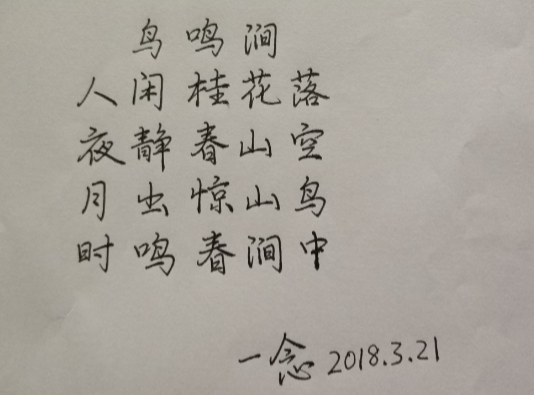 鸟鸣涧
人闲桂花落
夜静春山空
月出惊山鸟
时鸣春涧中
一念 2018.3.21